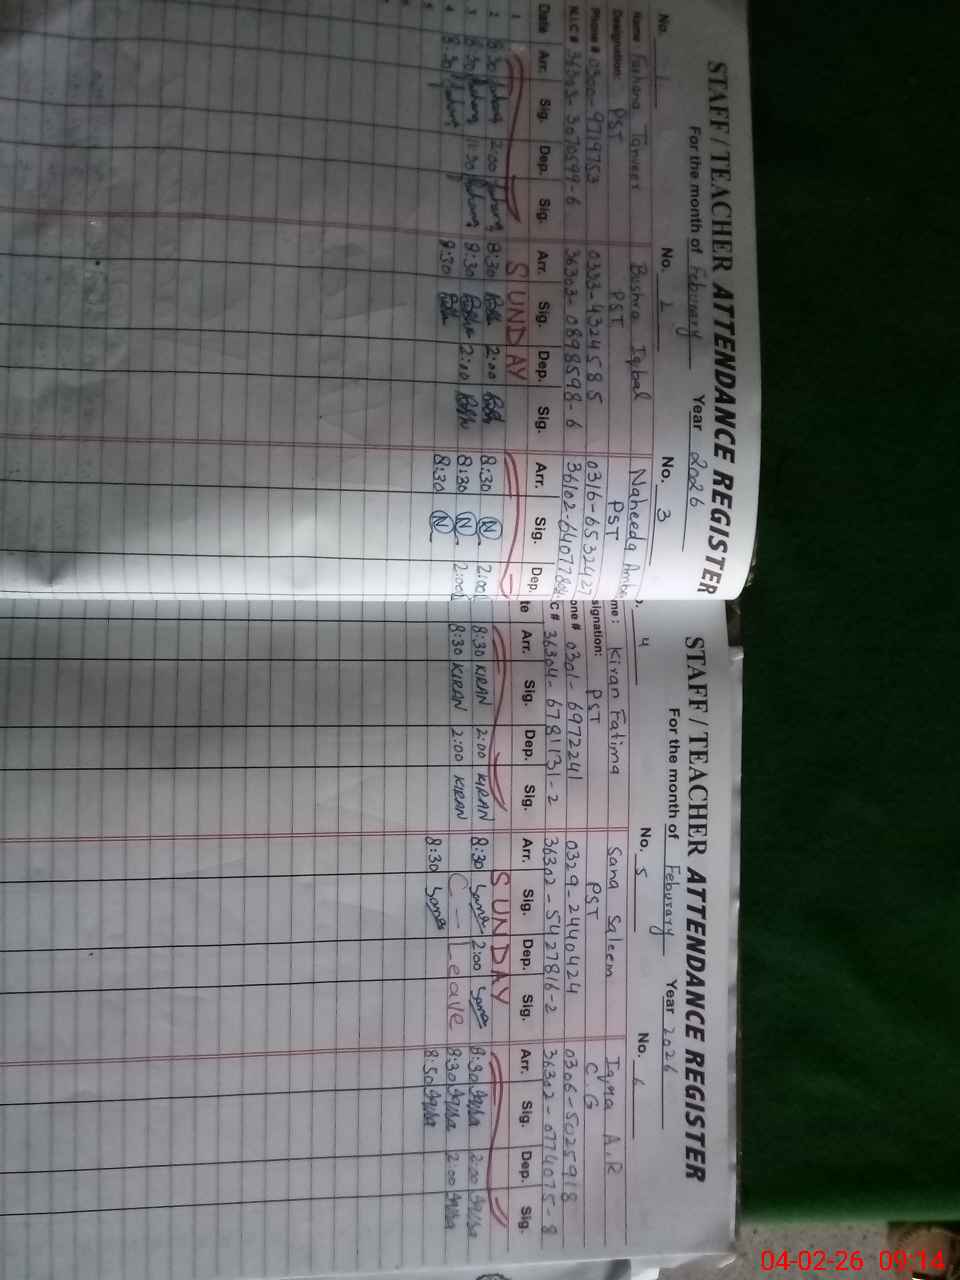 STAFF / TEACHER ATTENDANCE REGISTER
For the month of Feburary Year 2026
No. 1 No. 2 No. 3
Name Farhana Tanveer Bushra Iqbal Naheeda
Designation: PST PST PST
Phone # 0300-9719753 0333-4324585 0316-6532427
N.I.C # 0898598-6
Date Arr. Sig. Dep. Sig. Arr. Sig. Dep. Sig. Arr. Sig. Dep.
1 SUNDAY
2 8:30 2:00 8:30 2:00 8:30 N 2:00
3 8:30 11:30 8:30 2:00 8:30 N 2:00
4 8:30 8:30 8:30 N
5
STAFF / TEACHER ATTENDANCE REGISTER
For the month of Feburary Year 2026
4 No. 5 No. 6
me: Kiran Fatima Sana Saleem Iqra A.R
signation: PST PST C.G
one # 0301-6972241 0329-2440424 0306-5025918
C # 36304-6781131-2 36302-5427816-2 36302-0774075-8
te Arr. Sig. Dep. Sig. Arr. Sig. Dep. Sig. Arr. Sig. Dep. Sig.
SUNDAY
8:30 KIRAN 2:00 KIRAN 8:30 Sana 2:00 Sana 8:30 2:00
8:30 KIRAN 2:00 KIRAN C - Leave 8:30 2:00
8:30 Sana 8:50
04-02-26 09:14